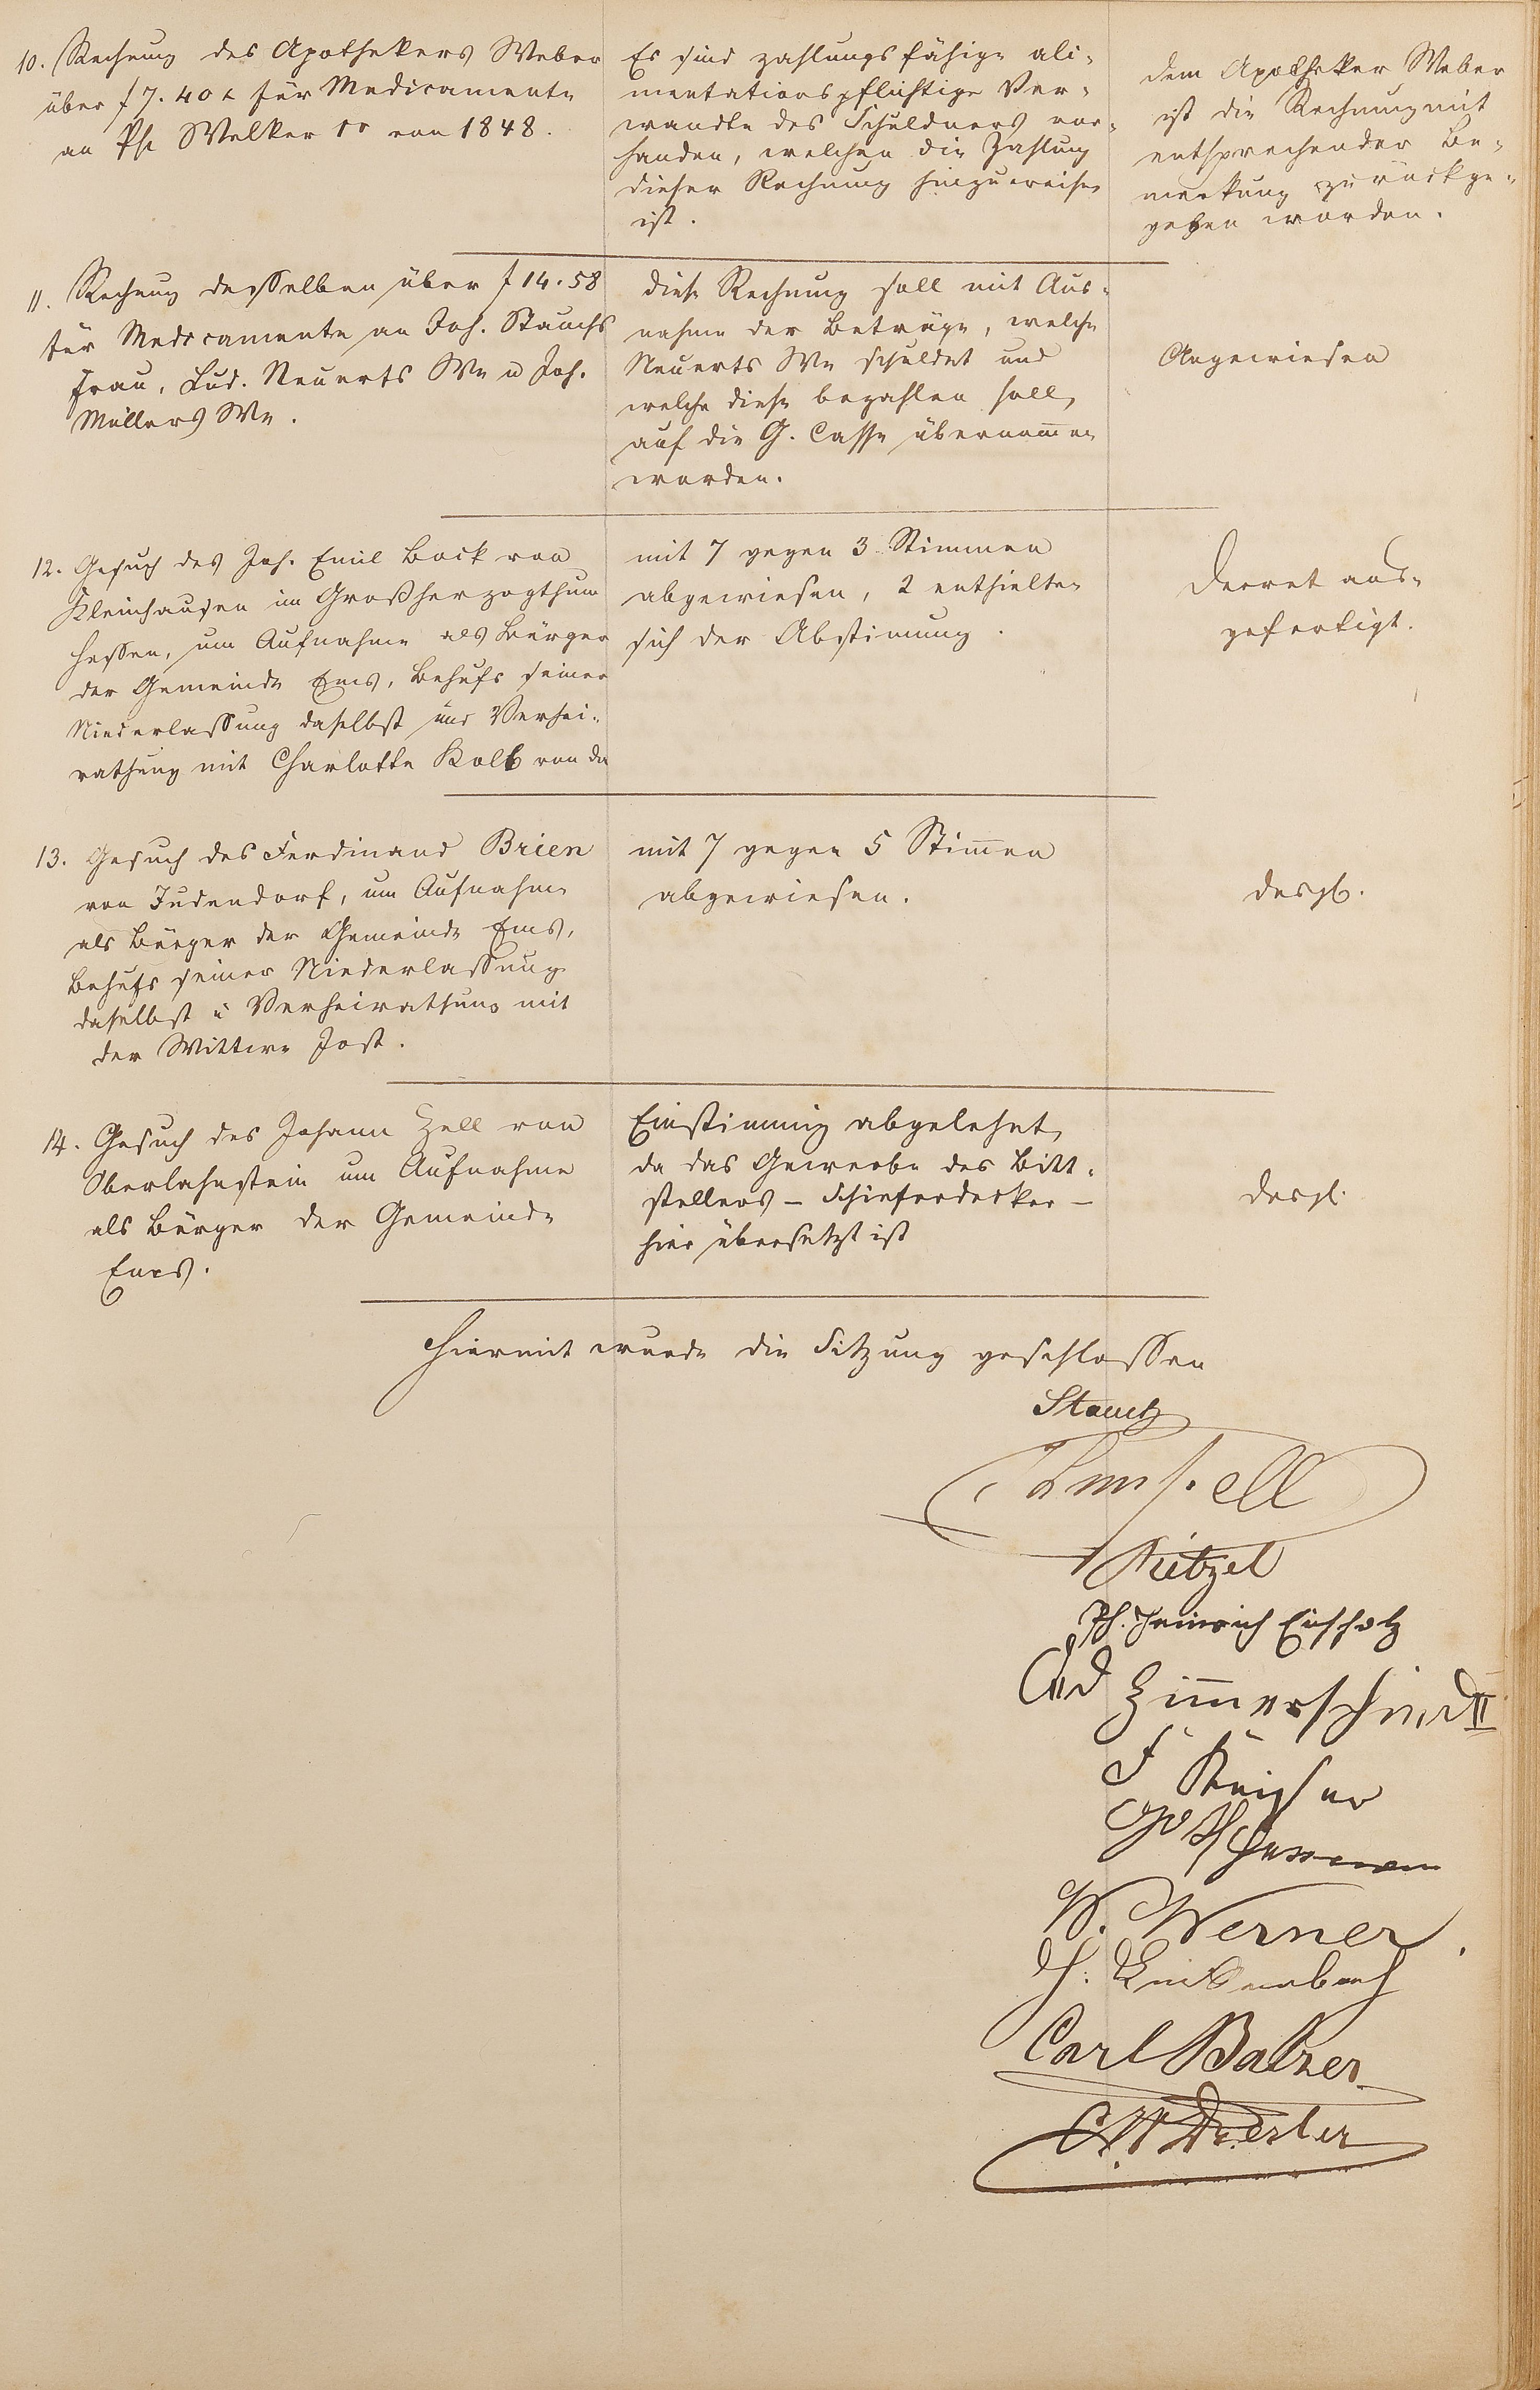 10. Rechnung des Apothekers Weber
über f 7. 40 x für Medicamente
an Ph. Welker von 1848.
Es sind zahlungsfähige ali-
mentationspflichtige Ver-
wandte des Schuldners vor-
handen, welchen die Zahlung
dieser Rechnung hinzuweisen
ist.
dem Apotheker Weber
ist die Rechnung mit
entsprechender Be-
merkung zurückge-
geben worden.
11. Rechnung desselben über f 14. 58
für Medicamente an Joh. Stauchs
Frau, Lud. Neuerts We u Joh.
Müllers We.
diese Rechnung soll mit Aus-
nahme der Beträge, welche
Neuerts We schuldet und
welche diese bezahlen soll,
auf die G. Casse übernom̅en
werden.
Angewiesen
12. Gesuch des Joh. Emil Bock von
Kleinhausen im Großherzogthum
Hessen, um Aufnahme als Bürger
der Gemeinde Ems, Behufs seiner
Niederlassung daselbst und Verhei-
rathung mit Charlotte Kolb von da
mit 7 gegen 3 Stimmen
abgewiesen, 2 enthielten
sich der Abstimung.
Decret aus-
gefertigt.
13. Gesuch des Ferdinand Brien
von Judendorf, um Aufnahme
als Bürger der Gemeinde Ems,
Behufs seiner Niederlassung
daselbst u Verheirathung mit
der Wittwe Jost.
mit 7 gegen 5 Stim̅en
abgewiesen.
desgl.
14. Gesuch des Johann Zell von
Oberlahnstein um Aufnahme
als Bürger der Gemeinde
Ems.
Einstimmig abgelehnt,
da das Gewerbe des Bitt-
stellers – Schieferdecker –
hier übersetzt ist
desgl.
Hiermit wurde die Sitzung geschlossen
Stauch
Ph. Heinrich Eichholz
Zim̅erschied II
W. Werner.
Carl Balzer